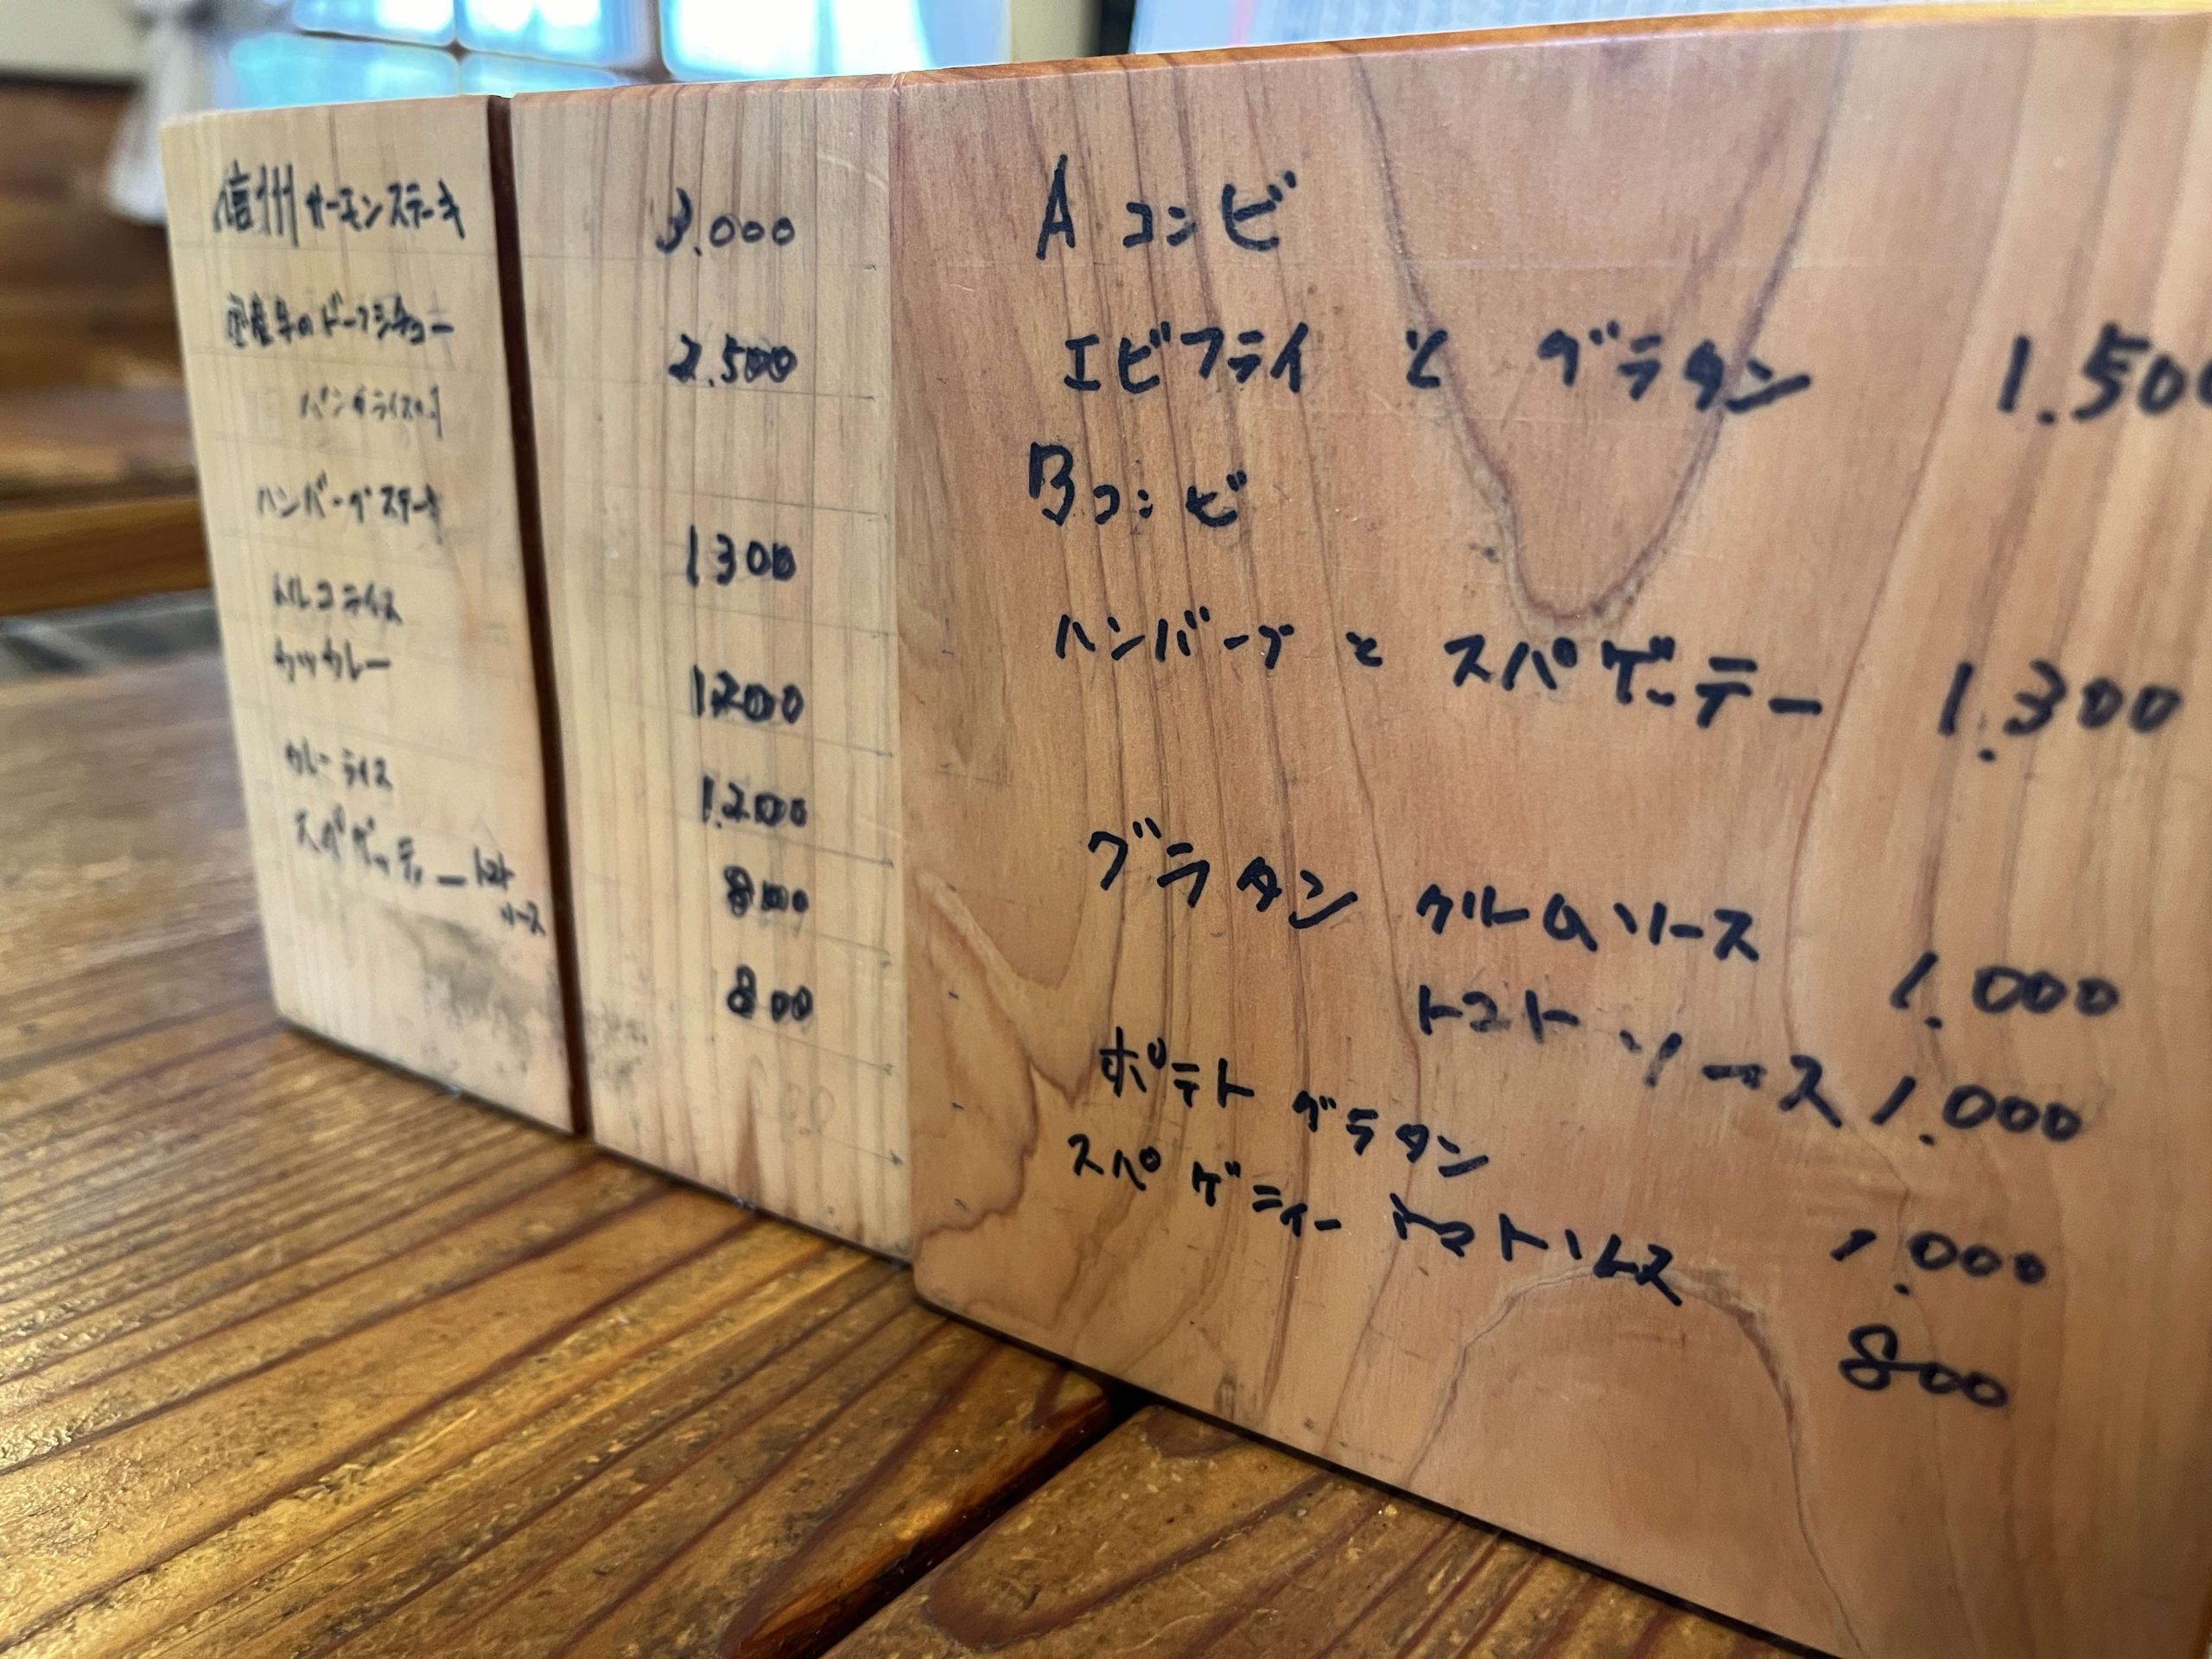 信州サーモンステーキ 3.000
国産牛のビーフシチュー 2.500
ハンバーグステーキ 1300
トルコライス 1200
カツカレー 1.200
カレーライス 800
スパゲッティートマト 800
ソース
Aコンビ
エビフライ と グラタン 1.500
Bコンビ
ハンバーグ と スパゲッテー 1.300
グラタン クリームソース 1.000
トマトソース 1.000
ポテトグラタン 1.000
スパゲティー トマトソース 800